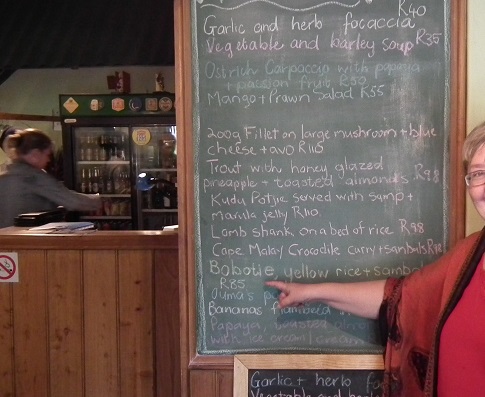 R40
Garlic and herb focaccia
Vegetable and barley soup R35
Ostrich Carpaccio with papaya
+ passion fruit R50
Mango + Prawn Salad R55
200g Fillet on large mushroom + blue
cheese + avo R115
Trout with honey glazed
pineapple + toasted almonds R98
Kudu Potjie served with samp +
Marula jelly R110
Lamb shank on a bed of rice R98
Cape Malay Crocodile curry + sambals
Bobotie yellow rice + sambal
R85
Ouma's
Bananas flambeed
Papaya, toasted
with ice cream/cream
Garlic + herb
Vegetable and